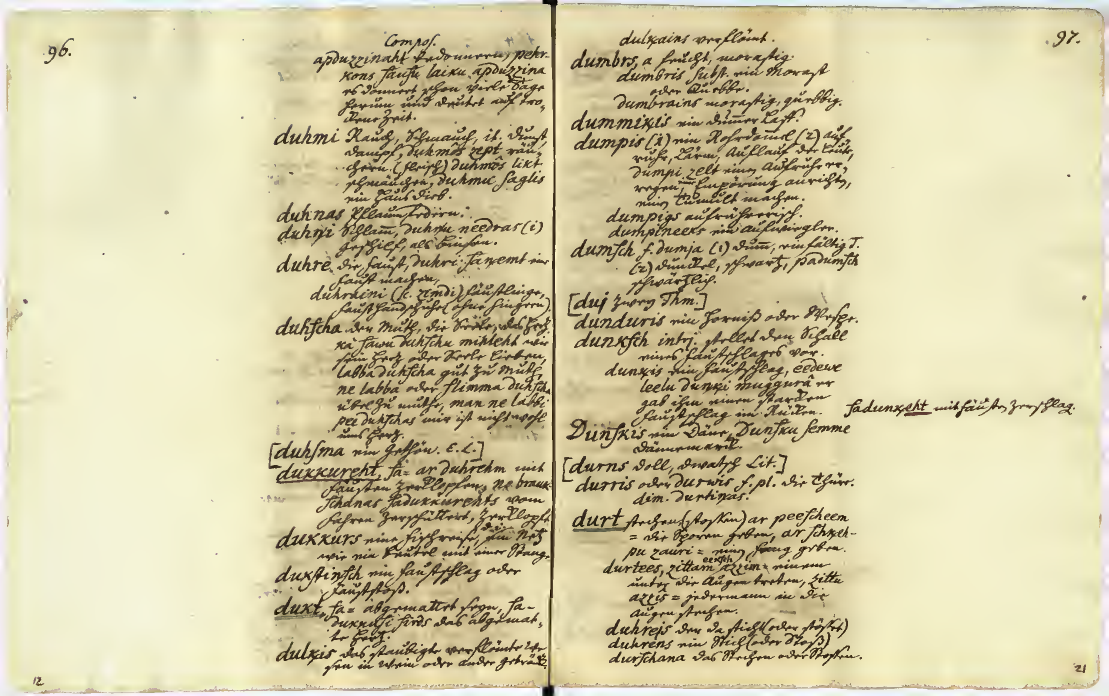 96.
Compos.
apduzzinaht bedonnern, pehr-
kons sausu laiku apduzzina
es donnert schon viele Tage
herum und deutet auf tro-
kene Zeit.
duhmi Rauch, Schmauch, it. Dunst
Dampf, duhmôs zept räu-
chern (fleisch) duhmôs likt
schmauchen, duhmu saglis
ein Haus dieb.
duhnas Pflaumfedern.
duhņi Schlamm, duhņu needras (i)
geschilf, als Binsen.
duhre die Faust, duhri saņemt eine
Faust machen,
duhraini (sc. zimdi) Fäustlinge,
Fausthandschuhe (ohne Fingern)
duhscha der Muth, die Seele, das Hertz
kà sawu duhschu mihleht wie
sein Hertz oder Seele lieben,
labba duhscha gut zu Muth,
ne labba oder slimma duhscha
übel zu muthe, man ne labbi
pee duhschas mir ist nicht wohl
ums Hertz.
[duhsma ein Gethön. E. L.]
dukkureht, sa= ar duhrehm mit
Fäusten zerklopfen, ne brauk-
schanas sadukkurehts vom
Fahren zerschüttert, zerklopft
dukkurs eine Fischreise, ein Netz
wie ein Beutel mit einer Stange
dukstinsch ein Faustschlag oder
Fauststoß.
dukt, sa= abgemattet seyn, sa-
dukkusi sirds das abgemat-
te Hertz.
dulķis das staubigte verflömte We-
sen in Wein oder ander geträck.
12
97.
dulķains verflömt.
dumbrs, a feucht, morastig
dumbris subst. ein Morast
oder Quebbe.
dumbrains morastig, quebbig.
dummiķis ein dummer Laff.
dumpis (1) ein Rohrdomel (2) auf
ruhr, Lärm, Auflauf der Leute,
dumpi zelt einen Aufruhr er-
regen, Empörung anrichten,
einen Tumult machen.
dumpigs aufrührerisch.
dumpineeks ein Aufwiegler.
dumsch f. dumja (1) dum, einfältig T.
(2) dunckel, schwartz, padumsch
schwärtzlich.
[duj zwey Thm.]
dunduris ein Horniß oder Wespe.
dunksch interj. stellet den Schall
eines Faustschlages vor.
dunķis ein Faustschlag, eedewe
leelu dunķi muggurà er
gab ihm einen starcken
Faustschlag im Rücken.
sadunķeht mit Fäusten zerschlagen.
Dunskis ein Däne, Dunsku semme
Dännemarck.
[durns doll, dwatsch Lit.]
durris oder durwis f. pl. die Thüre.
dim. durtinas.
durt stechen (stossen) ar peescheem
= die Sporen geben, ar schķeh-
pu zauri = einen Fang geben.
durtees, zittam azzîm = einem
eeksch
unter die Augen treten, zittu
azzîs = jedermann in die
Augen stechen.
duhrejs der da sticht (oder stösset)
duhrens ein Stich (oder Stoß)
durschana das Stechen oder Stossen.
21